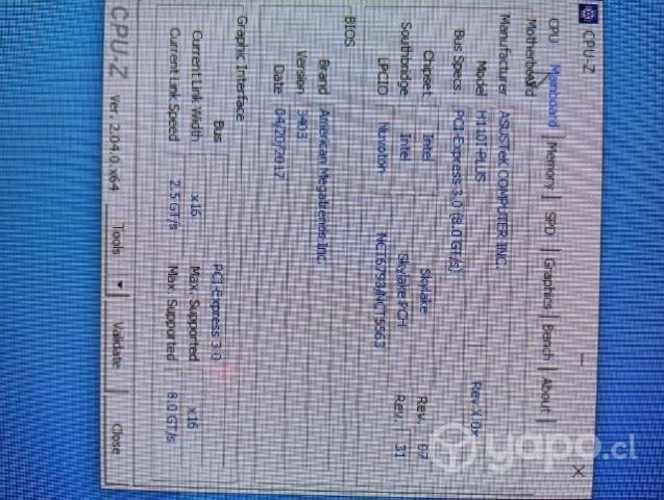 CPU-Z
CPU Mainboard Memory SPD Graphics Bench About
Motherboard
Manufacturer ASUSTeK COMPUTER INC.
Model H110I-PLUS Rev X.0x
Bus Specs PCI-Express 3.0 (8.0 GT/s)
Chipset Intel Skylake Rev. 07
Southbridge Intel Skylake PCH Rev. 31
LPCIO Nuvoton NCT6793/NCT5563
BIOS
Brand American Megatrends Inc.
Version 3403
Date 04/20/2017
Graphic Interface
Bus PCI-Express 3.0
Current Link Width x16 Max. Supported x16
Current Link Speed 2.5 GT/s Max. Supported 8.0 GT/s
CPU-Z Ver. 2.04.0.x64 Tools Validate Close
yapo.cl